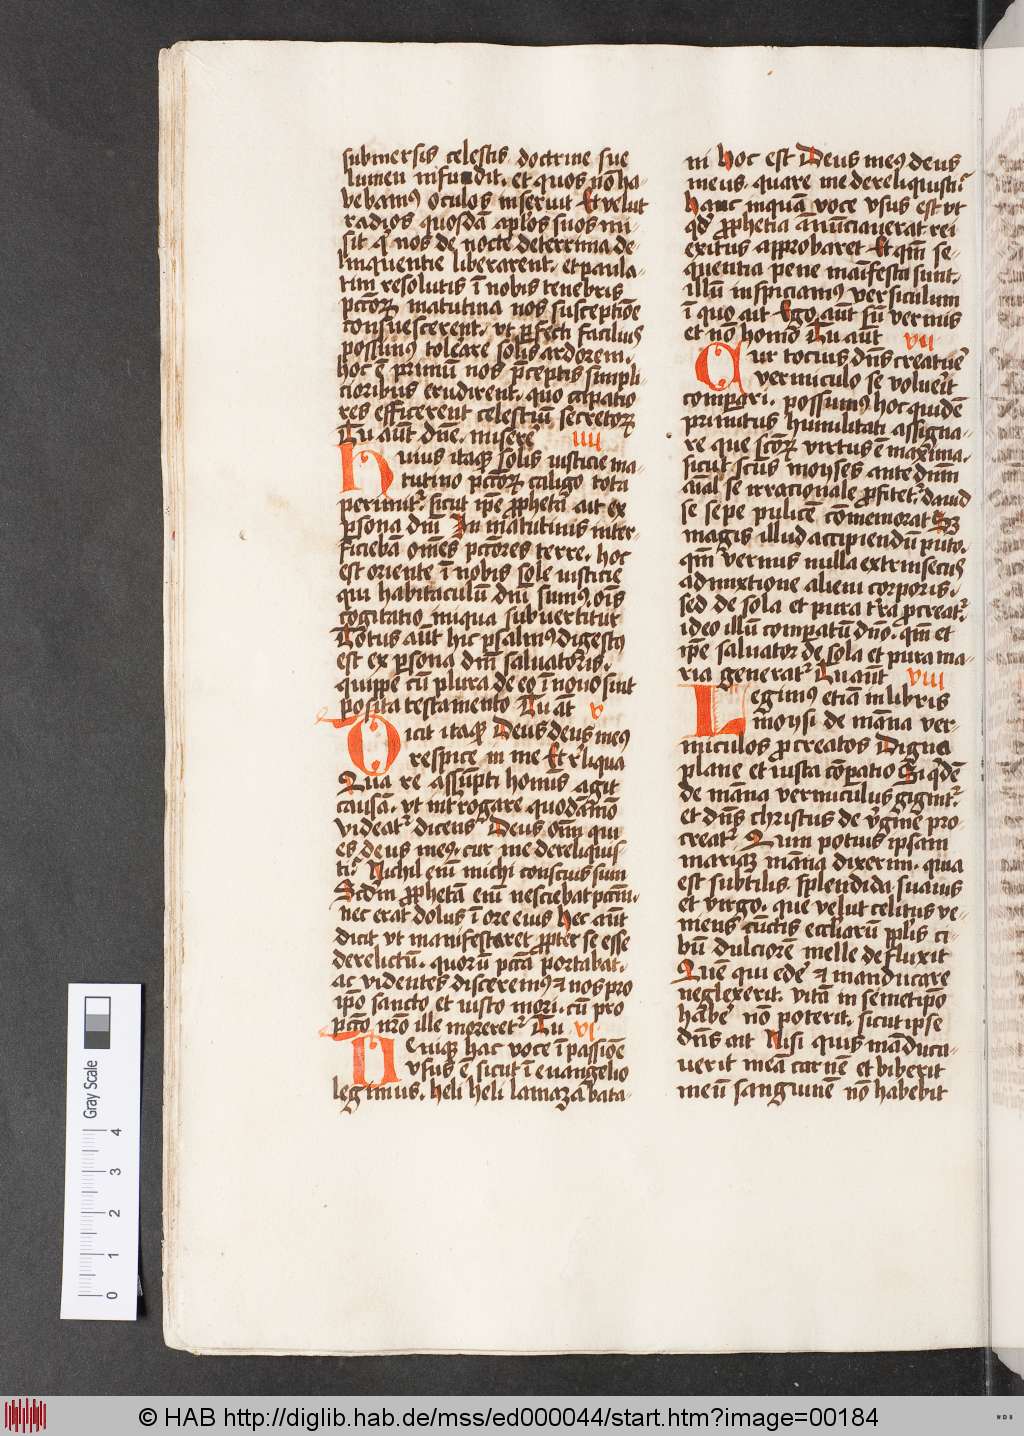 submersis celestis doctrine sue
lumen infundit. et quos nō ha-
bebamus oculos inseruit Et velut
radios quosdā aplos suos mi-
sit qͥ nos de nocte deterrima de-
linquentie liberarent. et paula-
tim resolutis ī nobis tenebris
pctorꝝ matutina nos susceptiōe
consuescerent. vt ꝑfecti facilius
possimus tolerare solis ardorem.
hoc ē primū nos p̄ceptis simpli-
cioribus erudirent. quo capatio
res efficerent celestiū secretorꝝ
Tu aūt dn̄e. miserē iiii
Huius itaqꝫ solis iusticie ma-
tutino pctorꝝ caligo tota
perimitᷣ. sicut ip̄e ꝓphetā ait ex
ꝑsona dn̄i In matutinis inter-
ficiebā om̄es pctōres terre. hoc
est oriente ī nobis sole iusticie
qui habitaculū dn̄i sumꝰ oīs
cogitatio iniqua subuertitur
Totus aūt hic psalmꝰ digestꝰ
est ex ꝑsona dn̄i saluatoris.
quippe cū plura de eo ī nouo sint
posita testamento Tu aūt v
Dicit itaqꝫ Deus deus meꝰ
respice in me Et rͤliqua
Quare assūpti homīs agit
causā. vt intͤrogare quodāmō
videatᷣ dicens Deus om̄i qui
es deus meꝰ. cur me dereliquis-
ti Nichil enī michi conscius sum
Scdm ꝓphetā enī nesciebat pctm̄.
nec erat dolus ī ore eius hec aūt
dicit vt manifestaret ꝓpter se esse
derelictū. quorū pctā portabat.
ac videntes disceremꝰ ⁊ nos pro
ip̄o sancto et iusto mori. cū pro
pctō nr̄o ille moreretᷣ Tu vi
Deniqꝫ hac voce ī passiōe
vsus ē sicut ī euangelio
legimus. heli heli lamazabata-
ni hoc est Deus meꝰ deus
meus. quare me dereliquisti
hanc inquam voce vsus est vt
qd̄ ꝓphetia ānūciauerat rei
exitus approbaret Et qm̄ se-
quentia pene maīfesta sunt.
illū inspiciamꝰ versiculum
ī quo ait Ego aūt sū vermis
et nō homo Tu aūt vii
Cur tocius dn̄s creaturͤ
vermiculo se voluerit
compari. possumꝰ hoc quidē
primitus humilitati assigna-
re que scōrꝝ virtus ē maxima.
sicut scūs moyses ante dn̄m
aīal se irracionale ꝓfitetᷣ. dauid
se sepe pulicē cōmemorat Sꝫ
magis illud accipiendū puto.
qm̄ vermis nulla extrinsecus
admixtione alieni corporis.
sed de sola et pura tr̄a ꝓcreatᷣ
ideo illū comparatū dn̄o. qm̄ et
ip̄e saluator de sola et pura ma-
ria generatᷣ Tu aūt viii
Legimus etiā in libris
moysi de māna ver-
miculos ꝓcreatos Digna
plane et iusta cōpatio Si qͥdē
de māna vermiculus gignitᷣ.
et dn̄s christus de virgine pro-
creatᷣ Quin potius ipsam
mariaꝫ māna dixerim. quia
est subtilis splendida suauis
et virgo. que velut celitus ve-
niens cūctis eccliarū pplis ci-
bū dulciorē melle defluxit
Quē qui edere ⁊ manducare
neglexerit. vitā in semetipō
habere nō poterit. sicut ipse
dn̄s ait Nisi quis māduca-
uerit meā carnē et biberit
meū sanguinē nō habebit
Gray Scale
0 1 2 3 4
© HAB http://diglib.hab.de/mss/ed000044/start.htm?image=00184